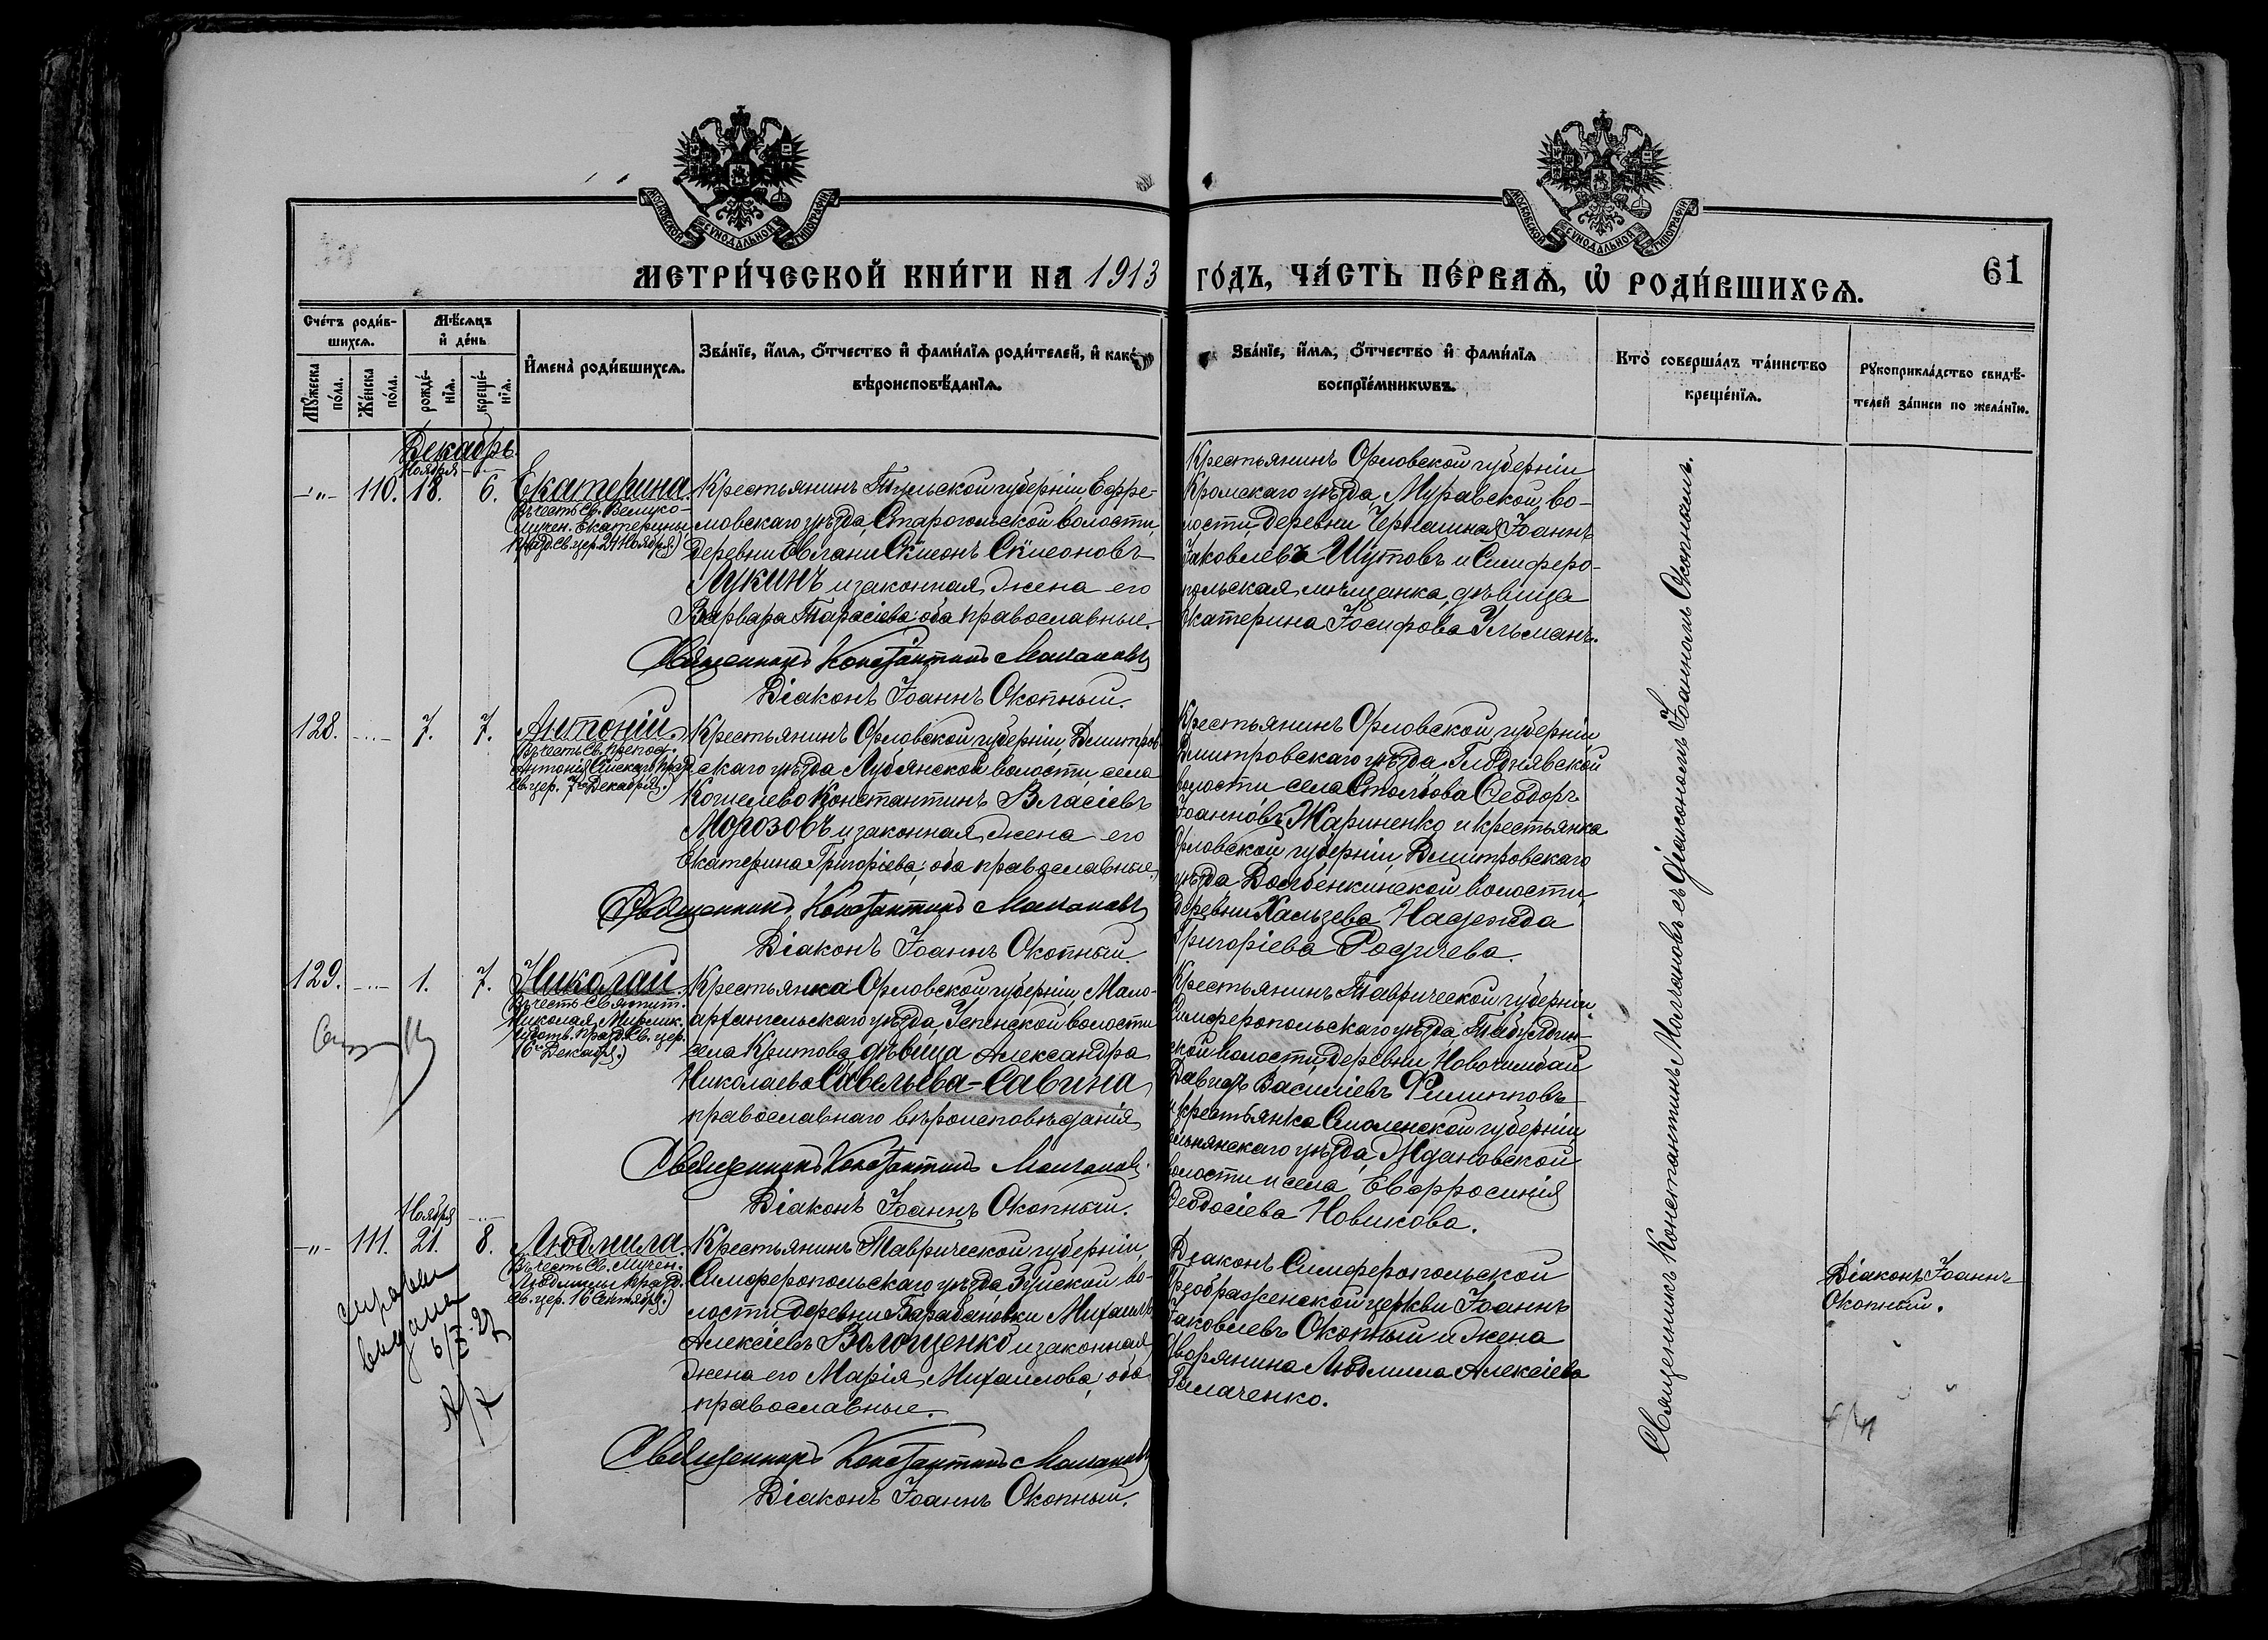 МОСКОВСКОЙ СѴНОДАЛЬНОЙ ТИПОГРАФІИ
МОСКОВСКОЙ СѴНОДАЛЬНОЙ ТИПОГРАФІИ
МЕТРИ́ЧЕСКОЙ КНИ́ГИ НА 1913 ГО́ДЪ, ЧА́СТЬ ПЕ́РВАѦ, Ѡ҆ РОДИ́ВШИХСѦ.
61
Сче́тъ роди́в-
шихсѧ.
Мѣ́сѧцъ
и҆ де́нь
Мꙋ́жеска
по́ла.
Же́нска
по́ла.
рожде́-
нїѧ.
креще́-
нїѧ.
И҆мена̀ роди́вшихсѧ.
Зва́нїе, и҆́мѧ, ѻ҆́тчество и҆ фами́лїѧ роди́телей, и҆ како́
вѣроисповѣ́данїѧ.
Зва́нїе, и҆́мѧ, ѻ҆́тчество и҆ фами́лїѧ
воспрїе́мникѡвъ.
Кто̀ соверша́лъ та́инство
креще́нїѧ.
Рꙋкоприкла́дство свидѣ́-
телей за́писи по жела́нїю.
Декабрь
Ноября
110. 18. 6. Екатерина
Въ честь Св. Велико-
мучен. Екатерины
празд. Св. цер. 24 Ноября.)
Крестьянинъ Тульской губерніи Ефре-
мовскаго уѣзда, Старогольской волости,
деревни Евлани Сѵмеонъ Сѵмеоновъ
Лукинъ и законная жена его
Варвара Тарасіева; оба православные.
Священникъ Константинъ Молчановъ
Діаконъ Іоаннъ Окопный.
Крестьянинъ Орловской губерніи
Кромскаго уѣзда, Муравской, во-
лости, деревни Чернашиная Іоаннъ
Іаковлевъ Шутовъ и Симферо-
польская мѣщанка, дѣвица
Екатерина Іосифова Ульманъ.
128. 7. 7. Антоній
Въ честь Св. препод.
Антонія Сійскаго празд.
Св. цер. 7 Декабря.)
Крестьянинъ Орловской губерніи, Дмитров-
скаго уѣзда Лубянской волости, села
Кошелево Константинъ Власіевъ
Морозовъ и законная жена его
Екатерина Григоріева; оба православные.
Священникъ Константинъ Молчановъ
Діаконъ Іоаннъ Окопный.
Крестьянинъ Орловской губерніи
Дмитровскаго уѣзда Глоднявской
волости села Столбова Ѳеодоръ
Іоанновъ Жариненко и крестьянка
Орловской губерніи, Дмитровскаго
уѣзда Долбенкинской волости,
деревни Хальзева Надежда
Григоріева Родичева.
129. 1. 7. Николай
Въ честь Святит.
Николая Мирлик.
Чудотв. празд. Св. цер.
6 Декабря.)
Крестьянка Орловской губерніи, Мало-
архангельскаго уѣзда, Успенской волости
села Критова дѣвица Александра
Николаева Савельева-Савина,
православнаго вѣроисповѣданія
Священникъ Константинъ Молчановъ
Діаконъ Іоаннъ Окопный.
Крестьянинъ Таврической губерніи
Симферопольскаго уѣзда, Табулдин-
ской волости, деревни Новочимбай
Давидъ Василіевъ Филипповъ
и крестьянка Смоленской губерніи
Ельнянскаго уѣзда, Ждановской
волости и села, Евфросинія
Ѳеодосіева Новикова.
Ноября
111. 21. 8. Людмила
Въ честь Св. Мучен.
Людмилы празд.
Св. цер. 16 Сентября.)
справка
выдана
6/X-27
Крестьянинъ Таврической губерніи,
Симферопольскаго уѣзда, Зуйской во-
лости, деревни Барабановки Михаилъ
Алексіевъ Волощенко и законная
жена его Марія Михаилова; оба
православные.
Священникъ Константинъ Молчановъ
Діаконъ Іоаннъ Окопный.
Діаконъ Симферопольской
Преображенской церкви Іоаннъ
Іаковлевъ Окопный и жена
дворянина Людмила Алексіева
Галаченко.
Священникъ Константинъ Молчановъ съ діакономъ Іоанномъ Окопнымъ.
Діаконъ Іоаннъ
Окопный.